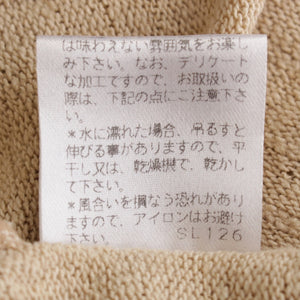 は味わえない雰囲気をお楽し
み下さい。なお、デリケート
な加工ですので、お取扱いの
際は、下記の点にご注意下さ
い。
*水に濡れた場合、吊るすと
伸びる事がありますので、平
干し又は、乾燥機で、乾かし
て下さい。
*風合いを損なう恐れがあり
ますので、アイロンはお避け
下さい。 SL126